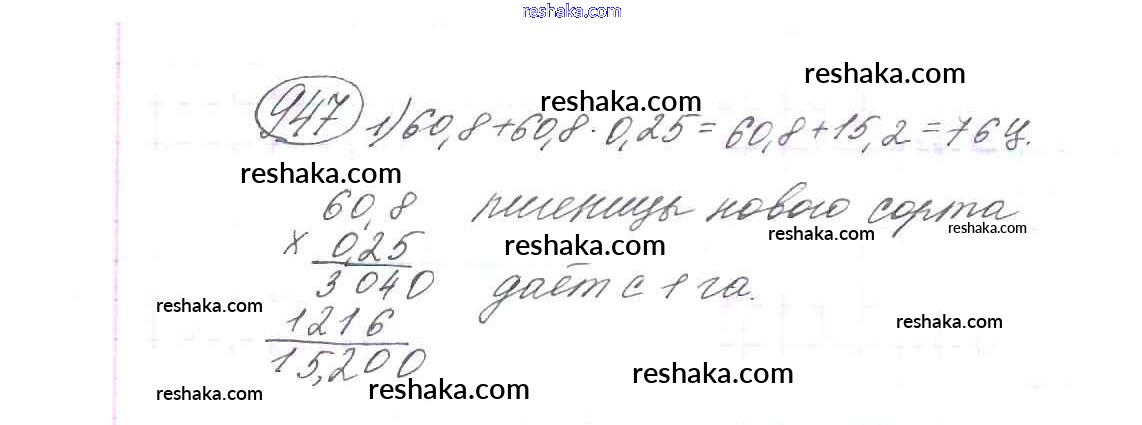 reshaka.com
reshaka.com
reshaka.com
947 1) 60,8+60,8·0,25=60,8+15,2=76ц.
reshaka.com
60,8 пшеницы нового сорта
reshaka.com
reshaka.com
× 0,25
reshaka.com
3040 даёт с 1 га.
reshaka.com
1216
reshaka.com
15,200
reshaka.com
reshaka.com
reshaka.com